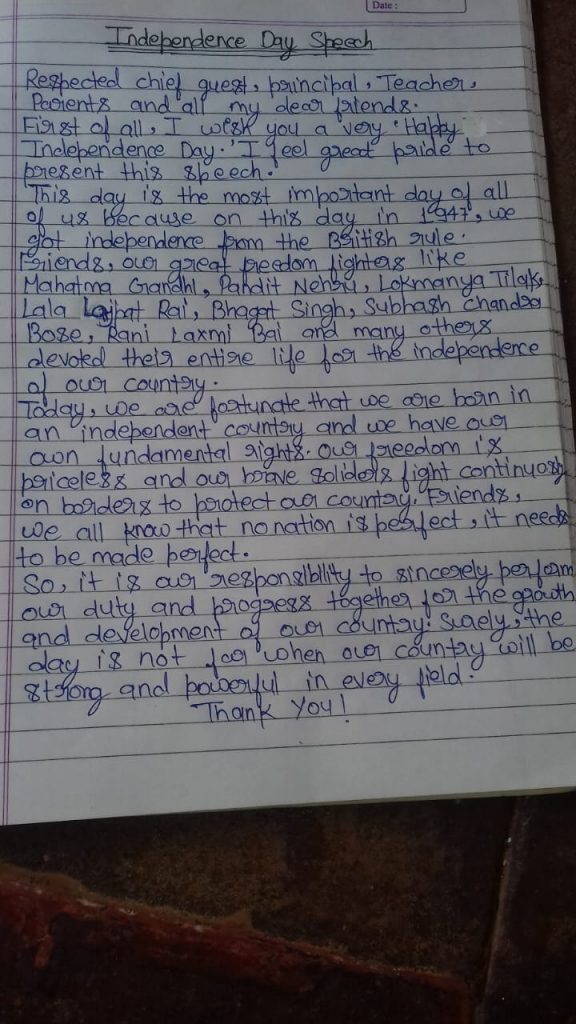 Date :
Independence Day Speech
Respected chief guest, principal, Teacher,
Parents and all my dear friends.
First of all, I wish you a very 'Happy
Independence Day.' I feel great pride to
present this speech.
This day is the most important day of all
of us because on this day in 1947, we
got independence from the British rule.
Friends, our great freedom fighters like
Mahatma Gandhi, Pandit Nehru, Lokmanya Tilak,
Lala Lajpat Rai, Bhagat Singh, Subhash Chandra
Bose, Rani Laxmi Bai and many others
devoted their entire life for the independence
of our country.
Today, we are fortunate that we are born in
an independent country and we have our
own fundamental rights. Our freedom is
priceless and our brave soliders fight continuosly
on borders to protect our country. Friends,
we all know that no nation is perfect, it needs
to be made perfect.
So, it is our responsibility to sincerely perform
our duty and progress together for the growth
and development of our country. Surely, the
day is not far when our country will be
strong and powerful in every field.
Thank You!